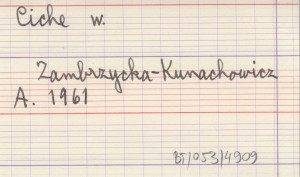 Ciche w.
Zambrzycka-Kunachowicz
A. 1961
BT/053/4909